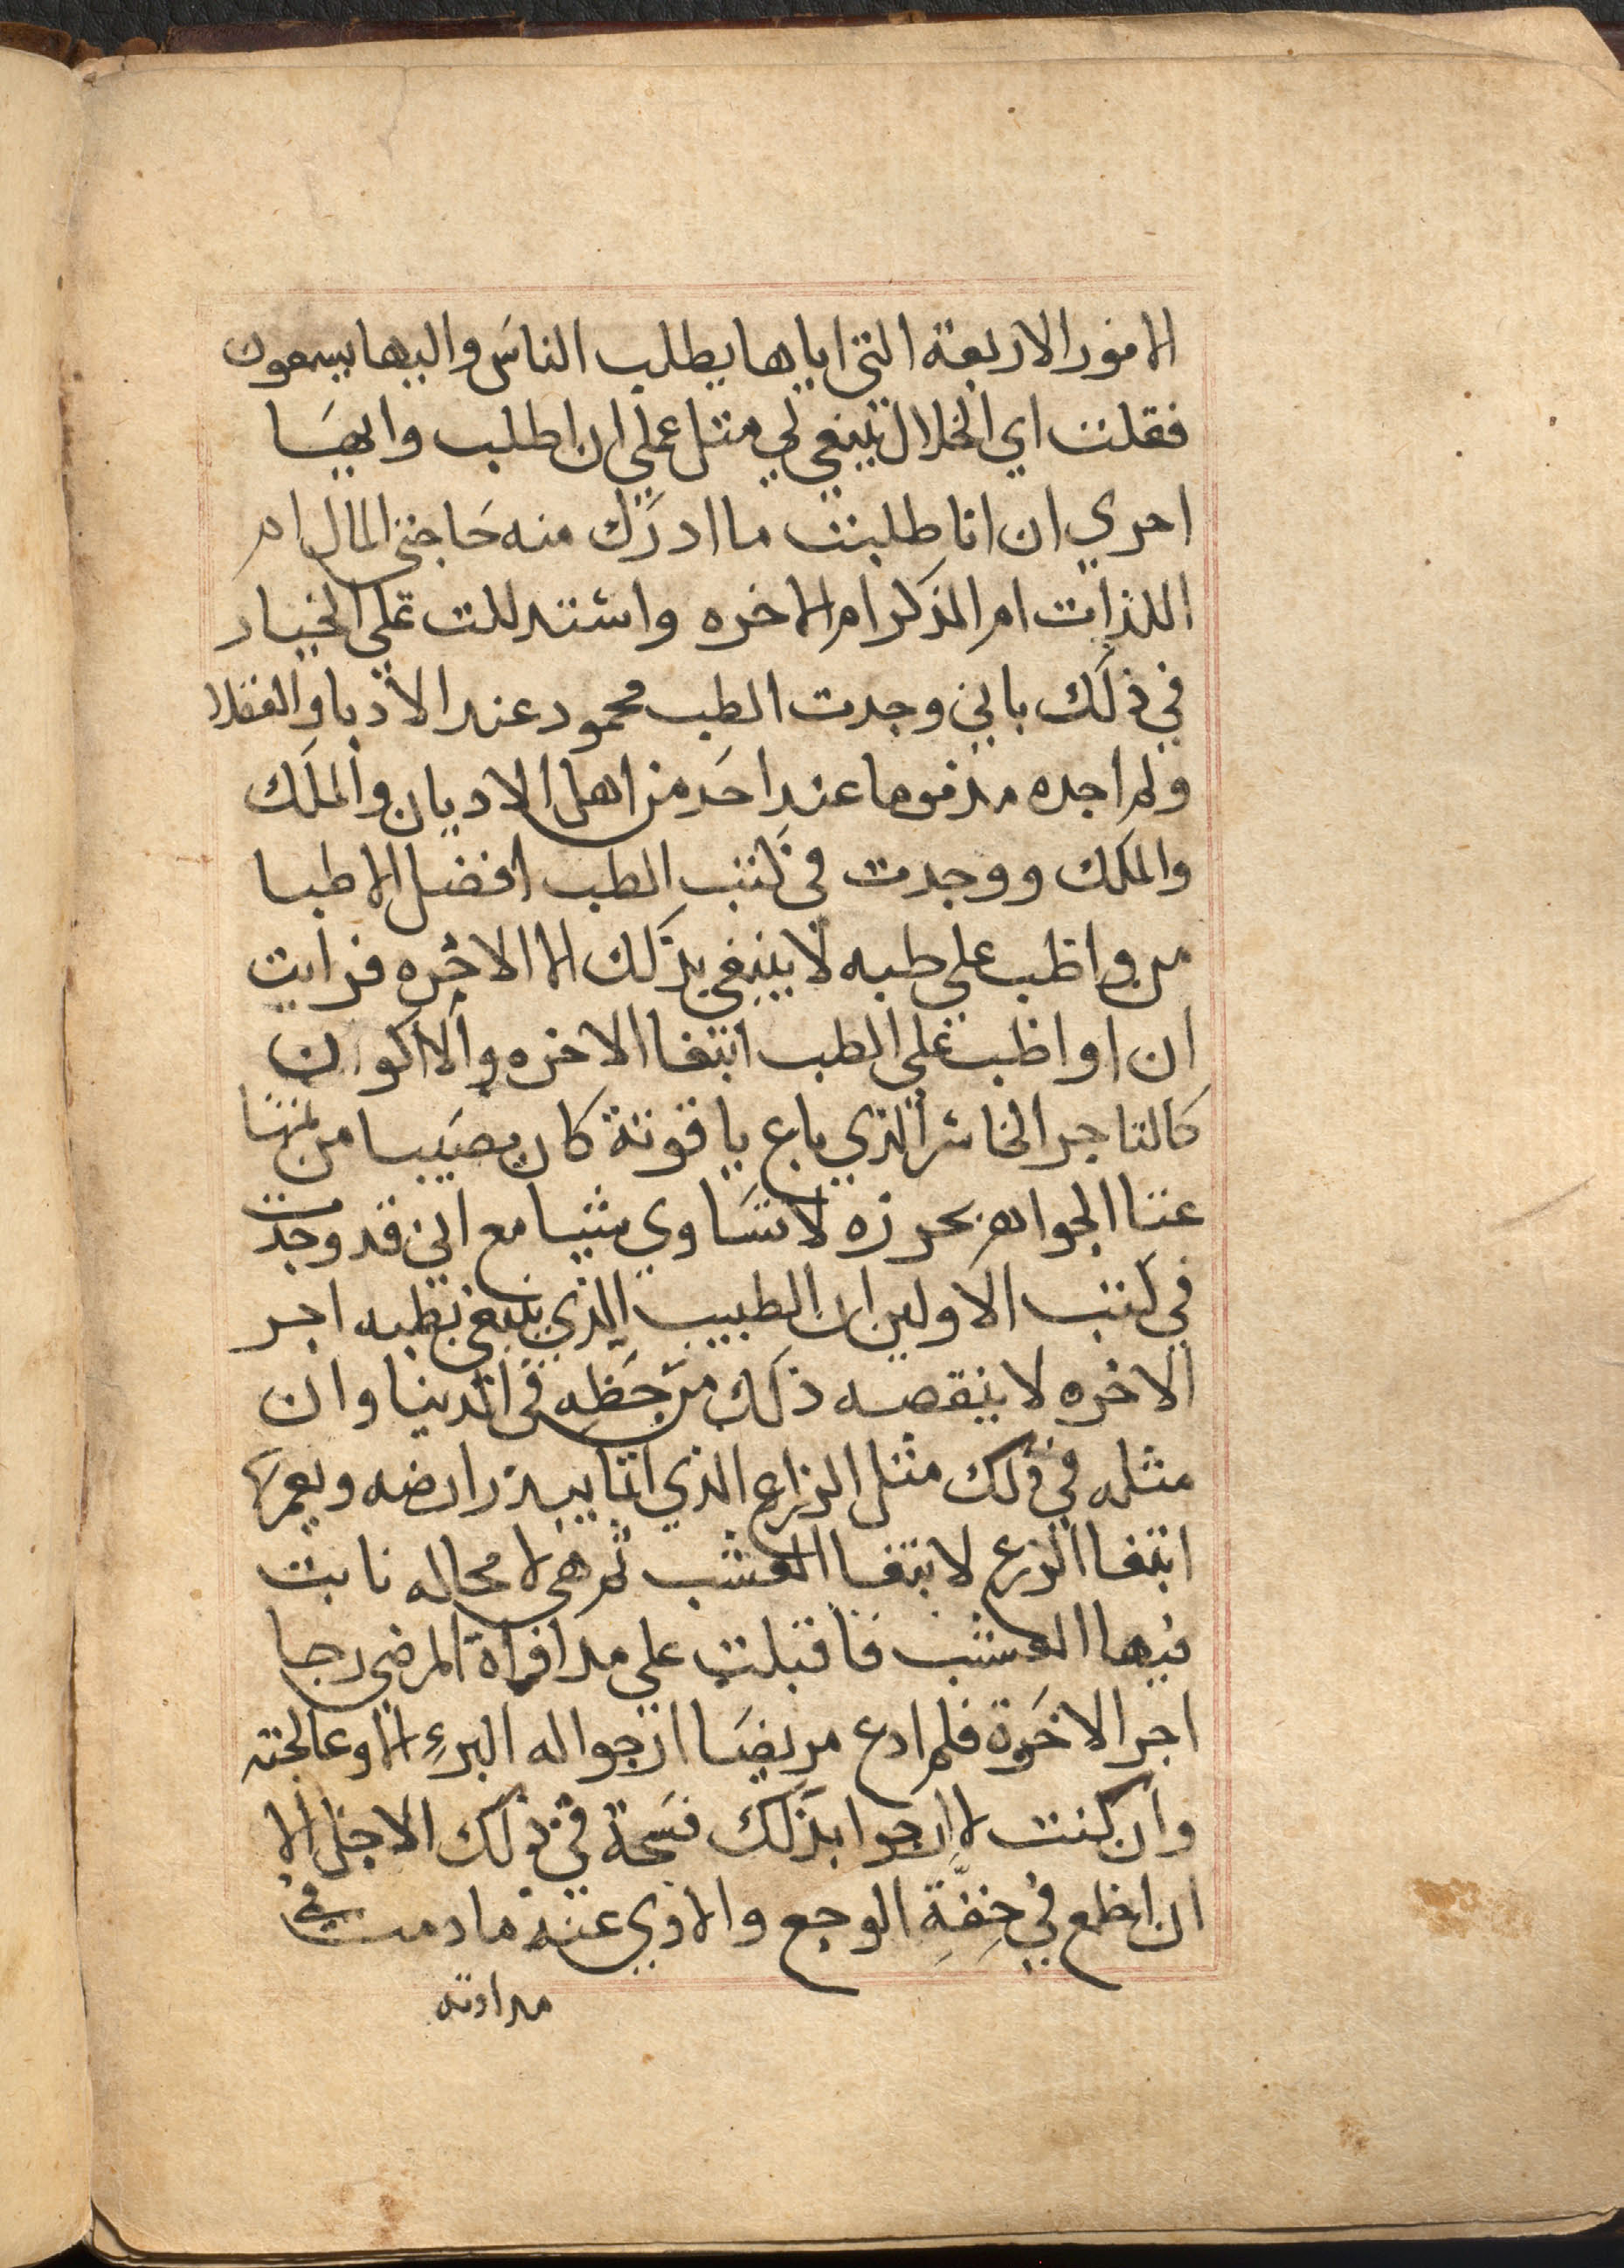 الامور الاربعة التي اياها يطلب الناس واليها يسعون
فقلت اي الخلال ينبغي لي مثل عملي ان اطلب وايها
احري ان انا طلبت ما ادرك منه حاجتي المال ام
اللذات ام الذكر ام الاخره واستدللت علي الخيار
في ذلك باني وجدت الطب محمود عند الادبا والعقلا
ولم اجده مذموما عند احد من اهل الاديان والملك
والملك ووجدت في كتب الطب افضل الاطبا
من واظب علي طبه لا يبتغي بذلك الا الاخره فرايت
ان اواظب علي الطب ابتغا الاخره والا اكون
كالتاجر الخاسر الذي باع ياقوتة كان مصيبا من ثمنها
غنا الجواهر بحرزه لا تساوي شيا مع اني قد وجدت
في كتب الاولين ان الطبيب الذي يبتغي بطبه اجر
الاخره لا ينقصه ذلك من حظه في الدنيا وان
مثله في ذلك مثل الزارع الذي انما يبذر ارضه ويعمرها
ابتغا الزرع لا ابتغا العشب ثم هي لا محاله نابت
فيها العشب فاقبلت علي مداواة المرضي رجا
اجر الاخرة فلم ادع مريضا ارجوا له البرء الا وعالجته
وان كنت لا ارجوا بذلك فسحة في ذلك الاجل الا
ان اطمع في خفة الوجع والاذي عنه ما دمت في
مداوته